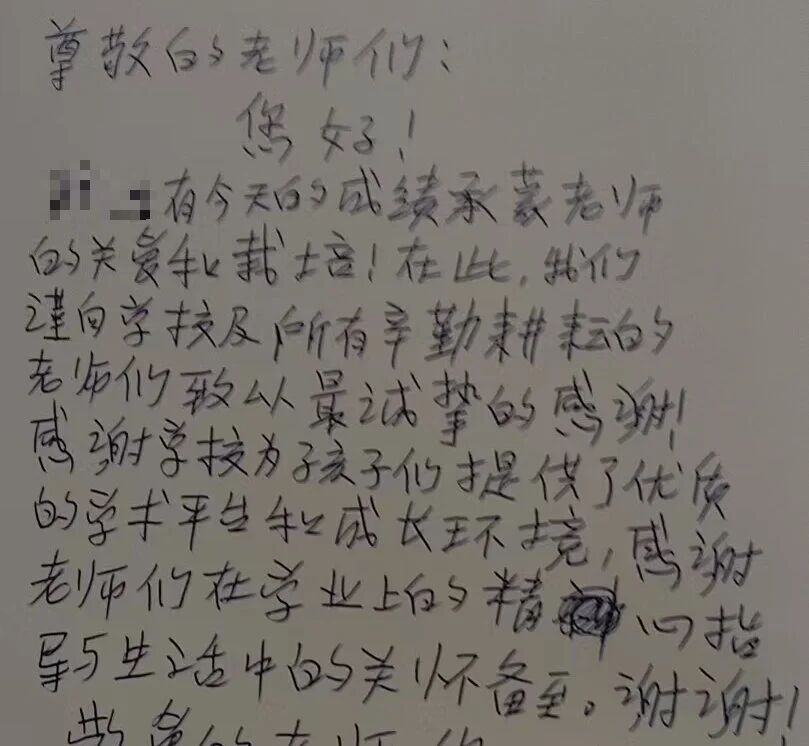 尊敬的老师们：
您好！
有今天的成绩承蒙老师
的关爱和栽培！在此，我们
谨向学校及所有辛勤耕耘的
老师们致以最诚挚的感谢！
感谢学校为孩子们提供了优质
的学术平台和成长环境，感谢
老师们在学业上的精心指
导与生活中的关怀备至。谢谢！